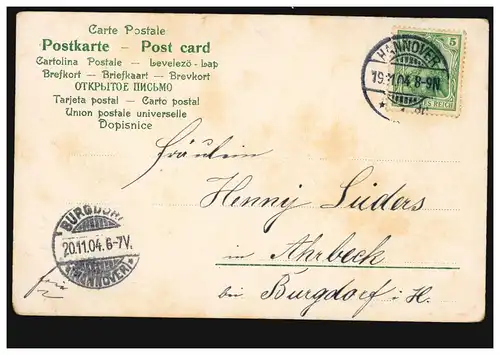 Carte Postale
Postkarte – Post card
Cartolina Postale – Levelező-Lap
Brefkort – Briefkaart – Brevkort
ОТКРЫТОЕ ПИСЬМО
Tarjeta postal – Carto postal
Union postale universelle
Dopisnice
5
HANNOVER
19.11.04. 8-9N
REICH
Fräulein
Henny Lüders
in Ahrbeck
bei Burgdorf i. H.
BURGDORF
20.11.04. 6-7V.
*(HANNOVER)*